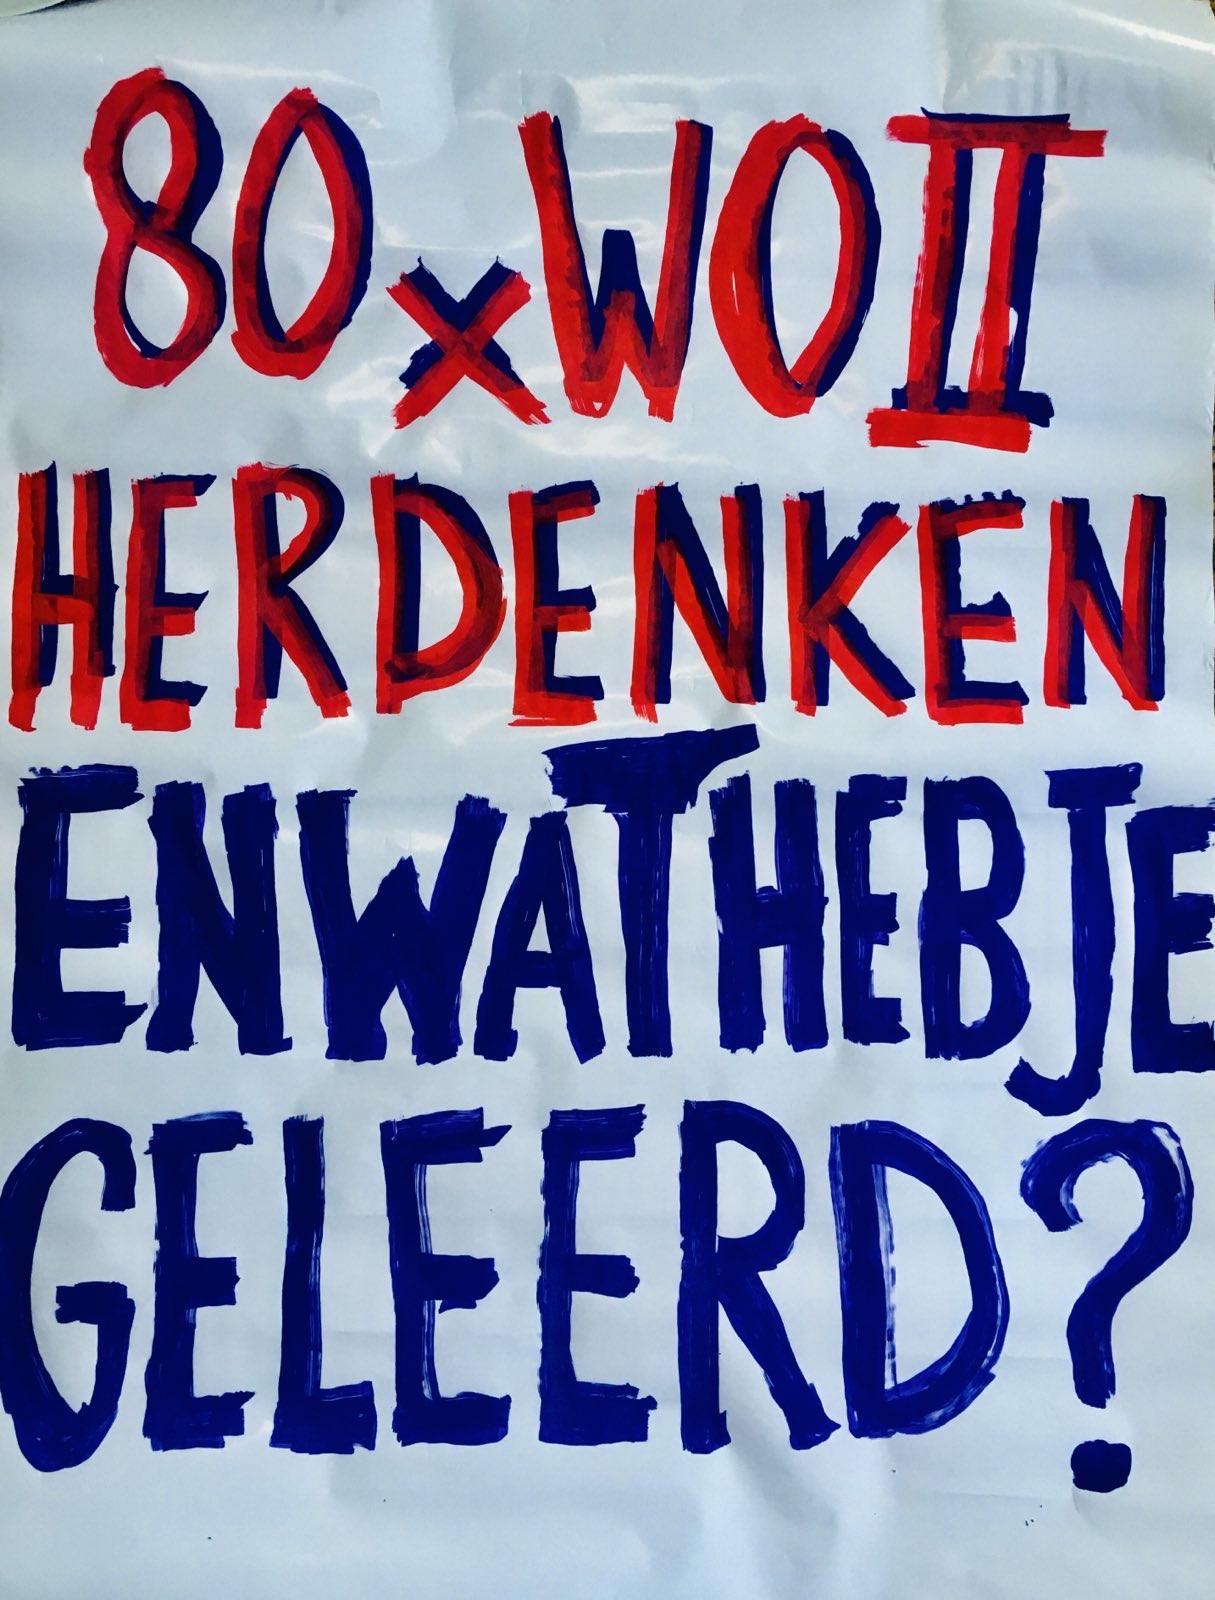 80xWOII
HERDENKEN
ENWATHEBJE
GELEERD?